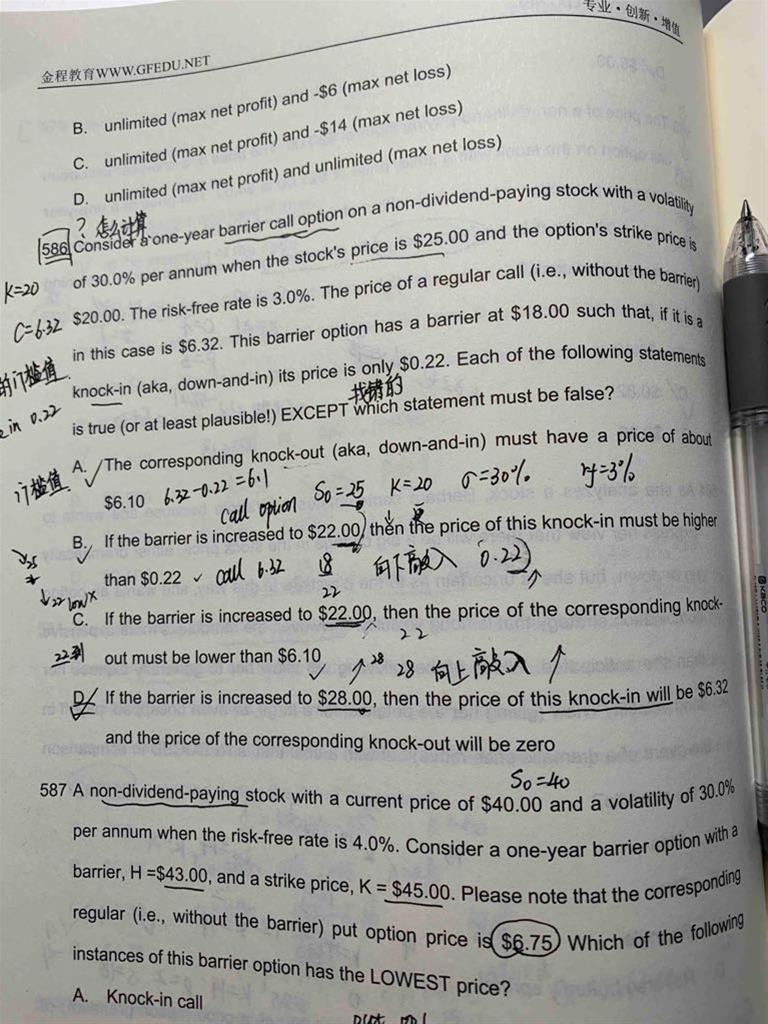 专业·创新·增值
金程教育WWW.GFEDU.NET
B. unlimited (max net profit) and -$6 (max net loss)
C. unlimited (max net profit) and -$14 (max net loss)
D. unlimited (max net profit) and unlimited (max net loss)
? 怎么计算
586 Consider a one-year barrier call option on a non-dividend-paying stock with a volatility
of 30.0% per annum when the stock's price is $25.00 and the option's strike price is
K=20
$20.00. The risk-free rate is 3.0%. The price of a regular call (i.e., without the barrier)
C=6.32
in this case is $6.32. This barrier option has a barrier at $18.00 such that, if it is a
的门槛值
knock-in (aka, down-and-in) its price is only $0.22. Each of the following statements
in 0.22
找错的
is true (or at least plausible!) EXCEPT which statement must be false?
门槛值
A. The corresponding knock-out (aka, down-and-in) must have a price of about
$6.10 6.32-0.22=6.1 S0=25 K=20 σ=30% rf=3%
call option
B. If the barrier is increased to $22.00, then the price of this knock-in must be higher
than $0.22 call 6.32 18 向下敲入 0.22
22
↓22 low x
C. If the barrier is increased to $22.00, then the price of the corresponding knock-
22
22到
out must be lower than $6.10 ↑28 28 向上敲入 ↑
D. If the barrier is increased to $28.00, then the price of this knock-in will be $6.32
and the price of the corresponding knock-out will be zero
S0=40
587 A non-dividend-paying stock with a current price of $40.00 and a volatility of 30.0%
per annum when the risk-free rate is 4.0%. Consider a one-year barrier option with a
barrier, H =$43.00, and a strike price, K = $45.00. Please note that the corresponding
regular (i.e., without the barrier) put option price is $6.75 Which of the following
instances of this barrier option has the LOWEST price?
A. Knock-in call